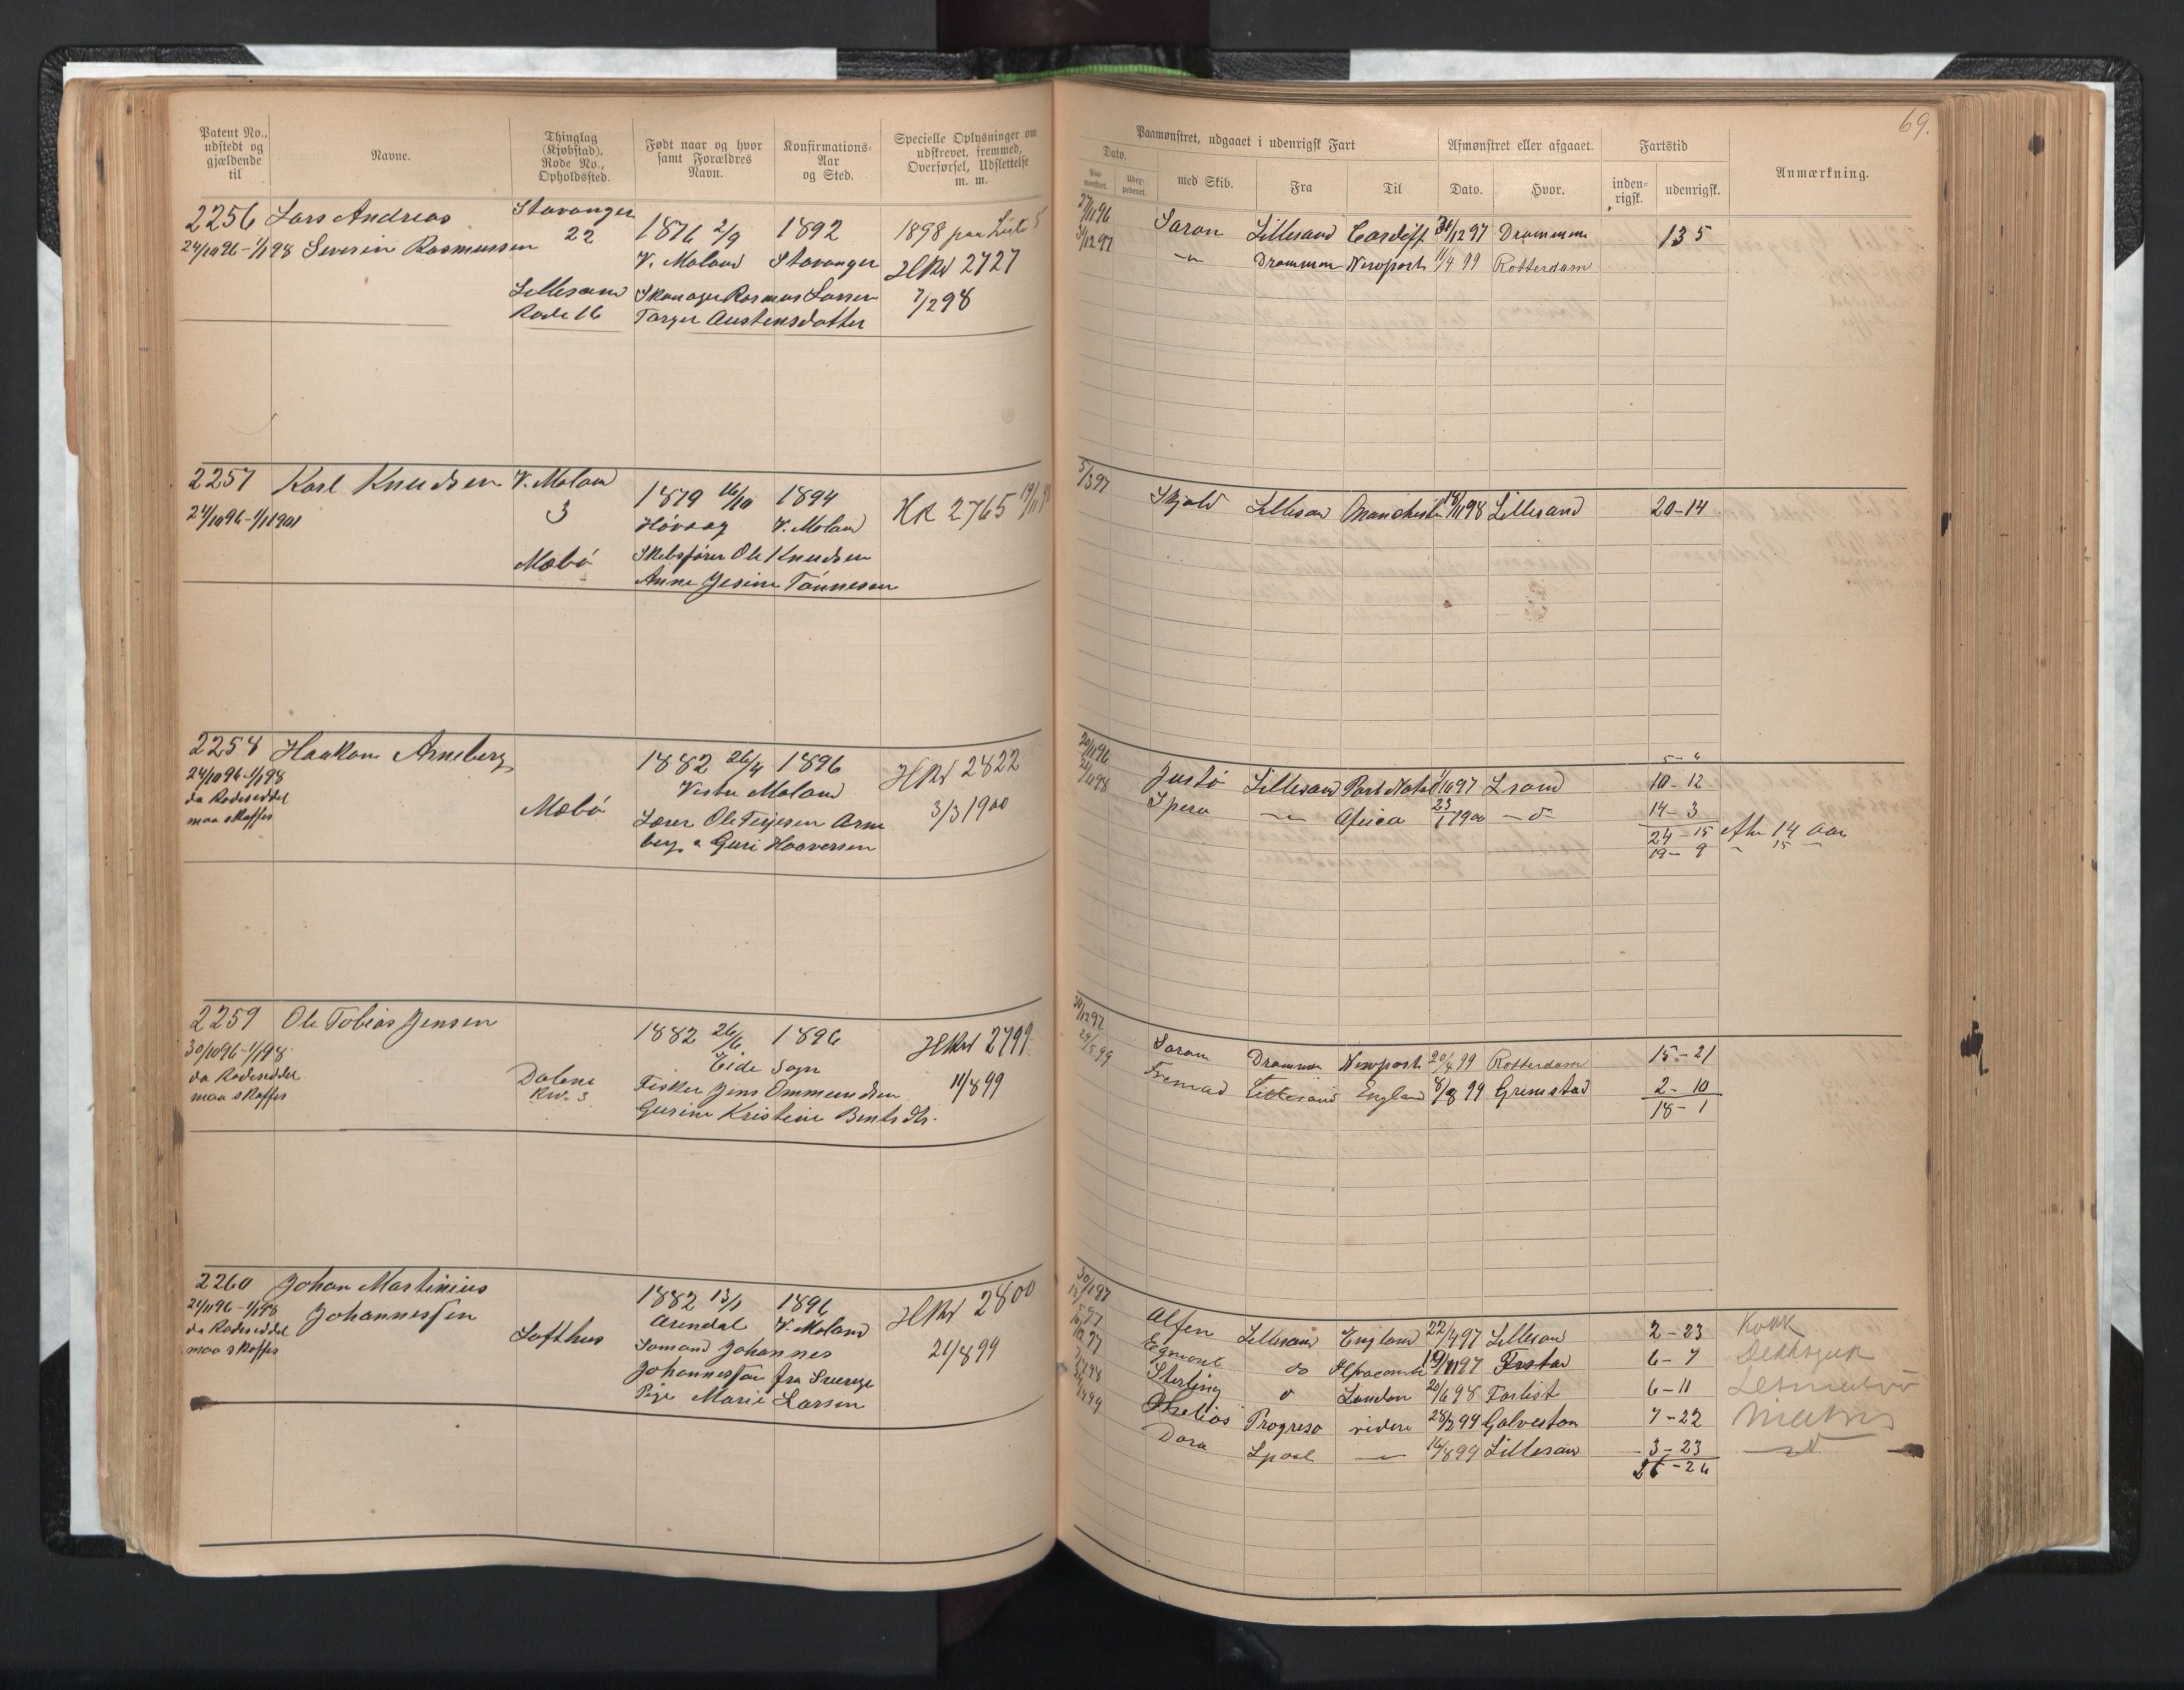 69.
Patent No., udstedt og gjældende til
Navne.
Thinglag (Kjøbstad). Rode No., Opholdssted.
Født naar og hvor samt Forældres Navn.
Konfirmations-Aar og Sted.
Specielle Oplysninger om udskrevet, fremmed, Overførsel, Udslettelse m. m.
Paamønstret, udgaaet i udenrigsk Fart
Afmønstret eller afgaaet.
Fartstid
Anmærkning.
Dato.
med Skib.
Fra
Til
Dato.
Hvor.
inden-rigsk.
udenrigsk.
2256 Lars Andreas Stavanger
24/10 96 - 1/1 98 Severin Rasmussen 22 1876 2/9 1892 1898 paa Liste 5
V. Moland Stavanger HRul 2727
Lillesand Skomager Rasmus Larsen 7/2 98
Rode 16 Targer Austensdatter
27/11 96 Saron Lillesand Cardiff 31/12 97 Drammen 13 5
31/12 97 -"- Drammen Newport 11/4 99 Rotterdam
2257 Karl Knudsen V. Moland
24/10 96 - 1/1 1901 3 1879 16/10 1894 HR 2765 19/11 98
Høvaag V. Moland
Mæbø Skibsfører Ole Knudsen
Anne Gesine Tønnesen
5/3 97 Skjold Lillesan Manchester 19/11 98 Lillesand 20-14
2258 Haakon Arneberg 1882 26/4 1896 HRul 2822
24/10 96 - 1/1 98 Vestre Moland 3/3 1900
da Rodeseddel
maa skaffes Mæbø Lærer Ole Terjesen Arne
berg & Guri Haaversen
20/11 96 Justø Lillesand Port Natal 1/6 97 Lsand 10-12
Spero -"- Africa 23/1 1900 -d- 14-3
24-15 efter 14 Aar
19-9 - 15 -
2259 Ole Tobias Jensen 1882 26/6 1896 HRul 2799
30/10 96 - 1/1 98 Eide Sogn 11/8 99
da Rodeseddel
maa skaffes Dalene Fisker Jens Ommundsen
Rv. 3 Gurine Kristine Bentsdtr.
30/12 97 Saron Drammen Newport 20/4 99 Rotterdam 15-21
29/5 99 Fremad Lillesand England 8/8 99 Grimstad 2-10
18-1
2260 Johan Martinius 1882 13/1 1896 HRul 2800
24/11 96 - 1/1 98 Johannessen Arendal V. Moland 21/8 99
da Rodeseddel
maa skaffes Lofthus Sømand Johannes
Johannessen fra Sverige
Pige Marie Larsen
30/1 97 Alfen Lillesand England 22/4 97 Lillesan 2-23 Kokk
Egmont do 19/11 97 6-7
Sterling d London 20/6 98 6-11
Progreso videre 28/2 99 Galveston 7-22
Dora Lpool -"- 16/8 99 Lillesan 3-23
26-26